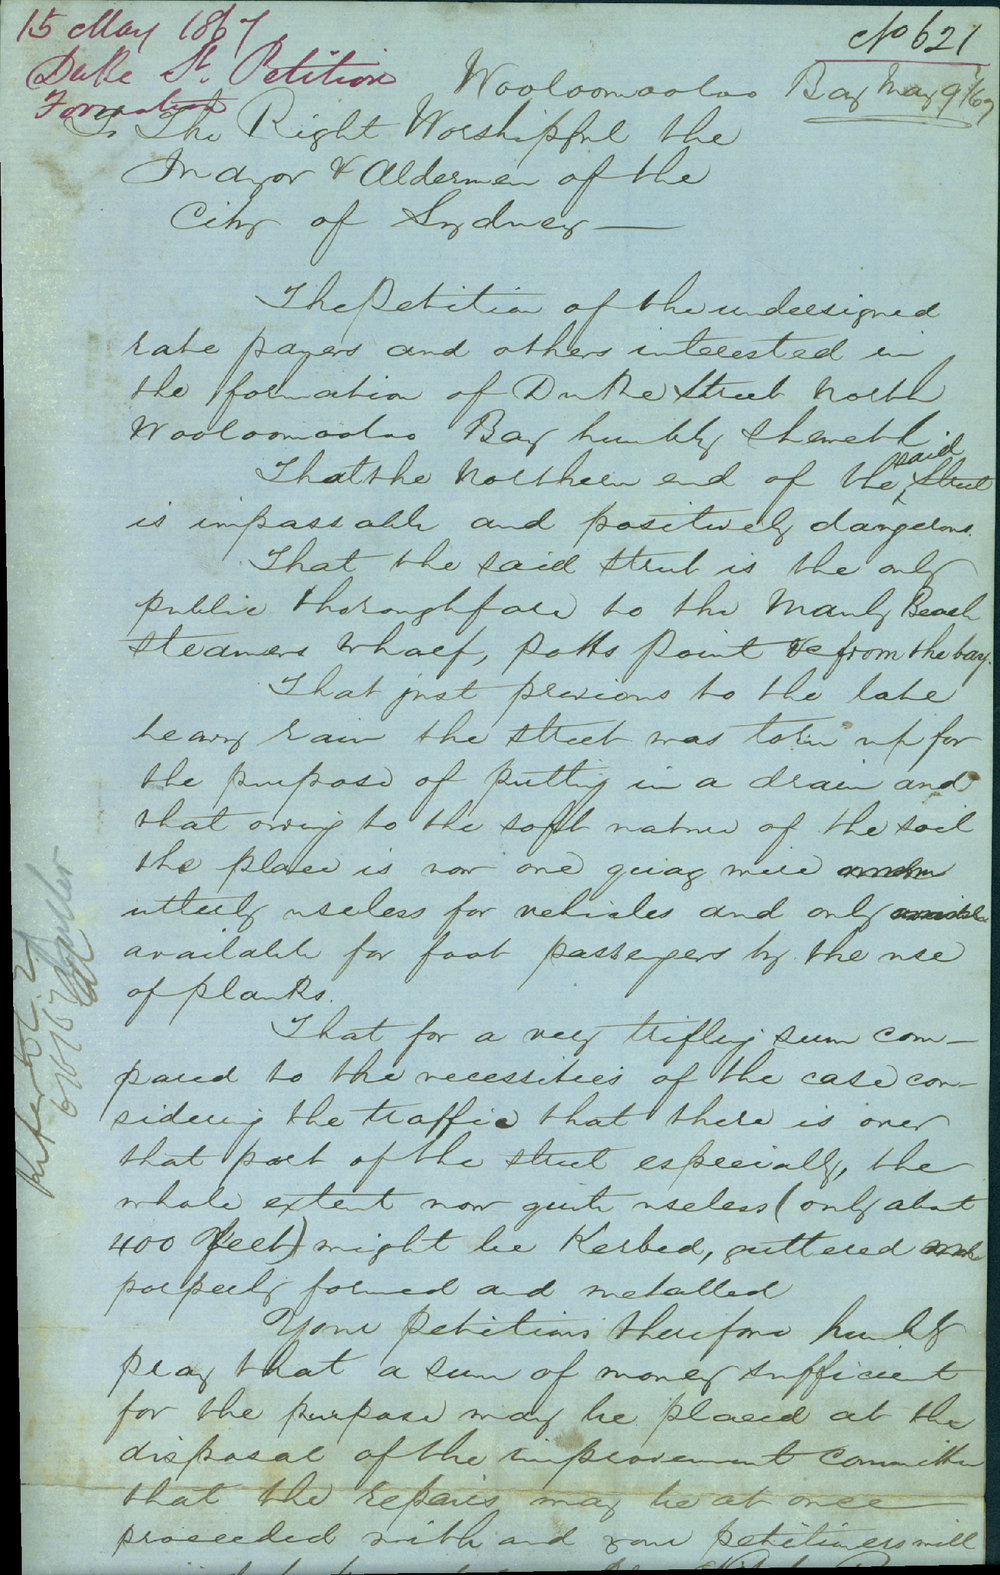 15 May 1867
Duke St. Petition
Formation
No 621
Wooloomooloo Bay May 9th/67
To The Right Worshipful the
Mayor & Aldermen of the
City of Sydney —
The Petition of the undersigned
rate payers and others interested in
the formation of Duke Street North
Wooloomooloo Bay humbly sheweth
That the Northern end of the said Street
is impassable and positively dangerous.
That the said Street is the only
public thoroughfare to the Manly Beach
Steamers Wharf, Potts Point &c from the bay.
That just previous to the late
heavy rain the street was torn up for
the purpose of putting in a drain and
that owing to the soft nature of the soil
the place is now one quag mire
utterly useless for vehicles and only
available for foot passengers by the use
of planks.
That for a very trifling sum com-
pared to the necessities of the case con-
sidering the traffic that there is over
that part of the street especially, the
whole extent now quite useless (only about
400 feet) might be Kerbed, guttered
porperly formed and metalled
Your petitions therefore humbly
pray that a sum of money sufficient
for the purpose may be placed at the
disposal of the improvement Committee
that the repairs may be at once
proceeded with and your petitioners will